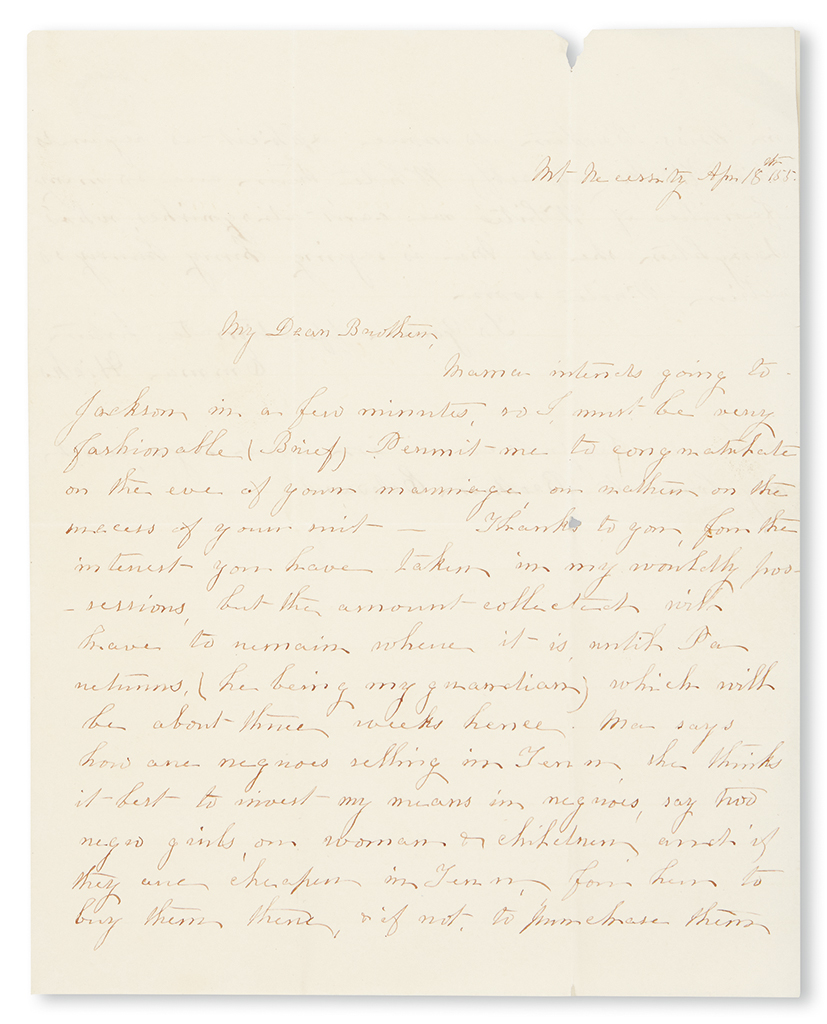 Mt Necessity Apr 18th /55.
My Dear Brother,
Mama intends going to
Jackson in a few minutes, so I, must be very
fashionable (Brief) Permit me to congratulate
on the eve of your marriage, or rather on the
success of your suit — Thanks to you, for the
interest you have taken in my worldly pos-
-sessions, but the amount collected will
have to remain where it is, until Pa
returns, (he being my guardian) which will
be about three weeks hence. Ma says
how are negroes selling in Tenn, she thinks
it best to invest my means in negroes, say two
negro girls, or woman & children, and if
they are cheaper in Tenn, for her to
buy them there, & if not, to purchase them